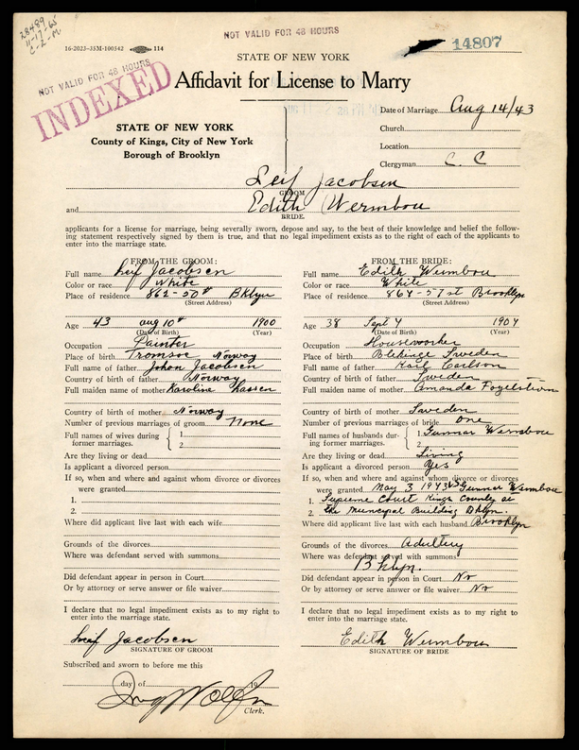 28499
11-17-65
C-Z-M
16-2023-35M-100342 114
NOT VALID FOR 48 HOURS
14807
NOT VALID FOR 48 HOURS
INDEXED
STATE OF NEW YORK
Affidavit for License to Marry
Date of Marriage Aug 14/43
Church
STATE OF NEW YORK
County of Kings, City of New York
Borough of Brooklyn
Location
Clergyman C. C
Leif Jacobsen
GROOM
and Edith Wermbou
BRIDE.
applicants for a license for marriage, being severally sworn, depose and say, to the best of their knowledge and belief the follow-
ing statement respectively signed by them is true, and that no legal impediment exists as to the right of each of the applicants to
enter into the marriage state.
FROM THE GROOM:
Full name Leif Jacobsen
Color or race White
Place of residence 862-50th Bklyn
(Street Address)
Age 43 Aug 10th 1900
(Date of Birth) (Year)
Occupation Painter
Place of birth Tromsoe Norway
Full name of father Johan Jacobsen
Country of birth of father Norway
Full maiden name of mother Karoline Hassen
Country of birth of mother Norway
Number of previous marriages of groom None
Full names of wives during
former marriages.
1
2
Are they living or dead
Is applicant a divorced person
If so, when and where and against whom divorce or divorces
were granted
1.
2.
Where did applicant live last with each wife
Grounds of the divorce
Where was defendant served with summons
Did defendant appear in person in Court
Or by attorney or serve answer or file waiver
I declare that no legal impediment exists as to my right to
enter into the marriage state.
Leif Jacobsen
SIGNATURE OF GROOM
Subscribed and sworn to before me this
day of 19
Clerk.
FROM THE BRIDE:
Full name Edith Wermbou
Color or race White
Place of residence 864-57st Brooklyn
(Street Address)
Age 38 Sept 4 1904
(Date of Birth) (Year)
Occupation Houseworker
Place of birth Blekinge Sweden
Full name of father Karl Carlson
Country of birth of father Sweden
Full maiden name of mother Amanda Fogelstrom
Country of birth of mother Sweden
Number of previous marriages of bride one
Full names of husbands dur-
ing former marriages.
1 Gunnar Wermbou
2
Are they living or dead Living
Is applicant a divorced person Yes
If so, when and where and against whom divorce or divorces
were granted May 3 1943 vs Gunnar Wermbou
1. Supreme Court Kings County at
2. the Municipal Building Bklyn.
Where did applicant live last with each husband Brooklyn
Grounds of the divorces adultery
Where was defendant served with summons
Bklyn.
Did defendant appear in person in Court No
Or by attorney or serve answer or file waiver No
I declare that no legal impediment exists as to my right to
enter into the marriage state.
Edith Wermbou
SIGNATURE OF BRIDE